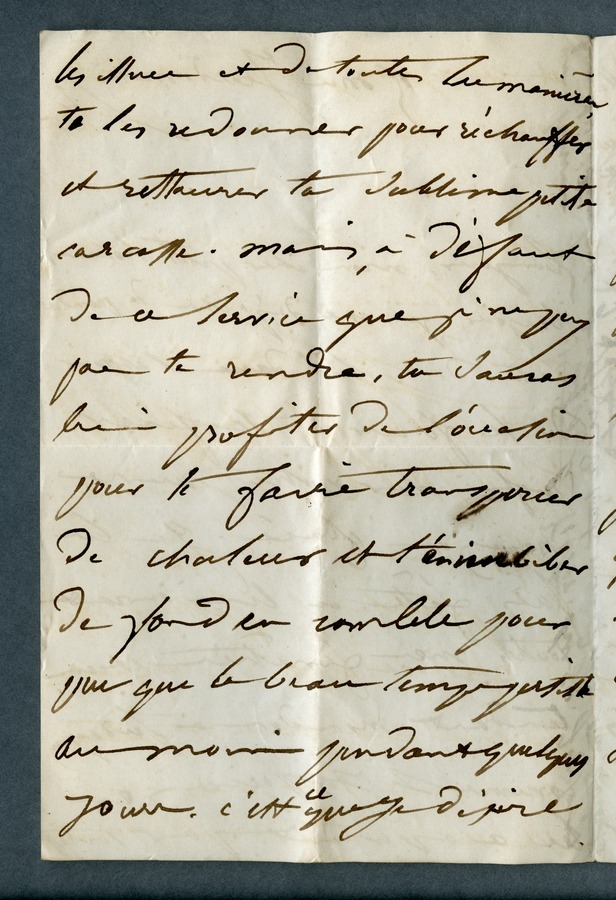 et de toutes les manières
te les redonner pour réchauffer
et restaurer ta sublime ptite
carcasse. mais, à défaut
de ce service que je ne puis
pas te rendre, tu sauras
bien profiter de l'occasion
pour te faire transpirer
de chaleur et t'en imbiber
de fond en comble pour
peu que le beau temps persiste
au moins pendant quelques
jours. c'est ce que je désire